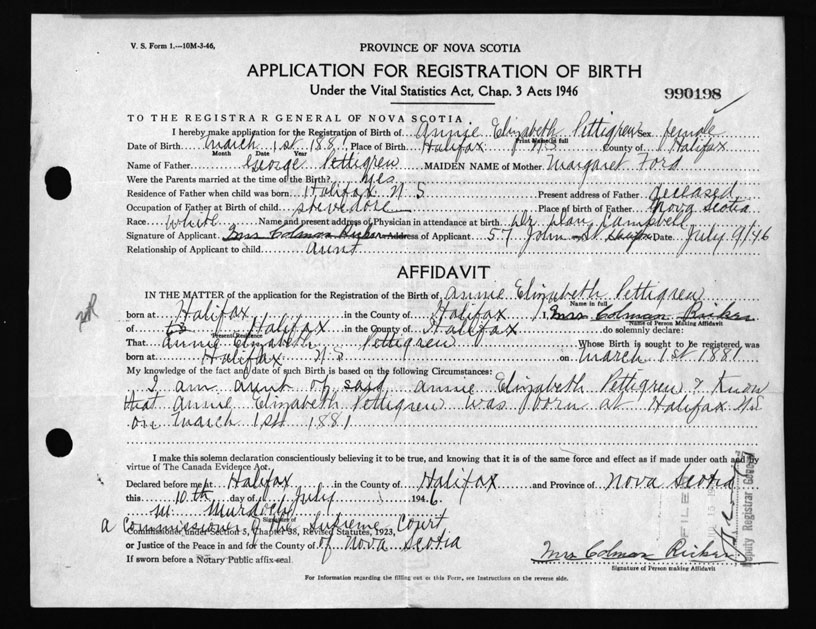 V. S. Form 1.—10M-3-46,
PROVINCE OF NOVA SCOTIA
APPLICATION FOR REGISTRATION OF BIRTH
Under the Vital Statistics Act, Chap. 3 Acts 1946
990198
TO THE REGISTRAR GENERAL OF NOVA SCOTIA
I hereby make application for the Registration of Birth of Annie Elizabeth Pettigrew Sex female
Print Name in full
Date of Birth March 1st 1881 Place of Birth Halifax N S County of Halifax
Month Date Year
Name of Father George Pettigrew MAIDEN NAME of Mother Margaret Ford
Were the Parents married at the time of the Birth? yes
Residence of Father when child was born Halifax N S Present address of Father deceased
Occupation of Father at Birth of child stevedore Place of birth of Father Nova Scotia
Race white Name and present address of Physician in attendance at birth Campbell
Signature of Applicant Mrs Colman Ricker Address of Applicant 57 John St Date July 9/46
Relationship of Applicant to child aunt
AFFIDAVIT
IN THE MATTER of the application for the Registration of the Birth of Annie Elizabeth Pettigrew
Name in full
born at Halifax in the County of Halifax I, Mrs Colman Ricker
Name of Person Making Affidavit
of Halifax in the County of Halifax do solemnly declare:
Present Residence
That Annie Elizabeth Pettigrew Whose Birth is sought to be registered, was
born at Halifax N S on March 1st 1881
My knowledge of the fact and date of such Birth is based on the following Circumstances:
I am aunt of said Annie Elizabeth Pettigrew & Know
that Annie Elizabeth Pettigrew was born at Halifax N S
on March 1st 1881
I make this solemn declaration conscientiously believing it to be true, and knowing that it is of the same force and effect as if made under oath and by
virtue of The Canada Evidence Act.
Declared before me at Halifax in the County of Halifax and Province of Nova Scotia
this 10th day of July 1946.
Murdoch
Signature of
a Commissioner of the Supreme Court
Commissioner under Section 5, Chapter 38, Revised Statutes, 1923,
or Justice of the Peace in and for the County of of Nova Scotia
If sworn before a Notary Public affix seal
Mrs Colman Ricker
Signature of Person making Affidavit
For Information regarding the filling out of this Form, see Instructions on the reverse side.
FILED
Deputy Registrar General